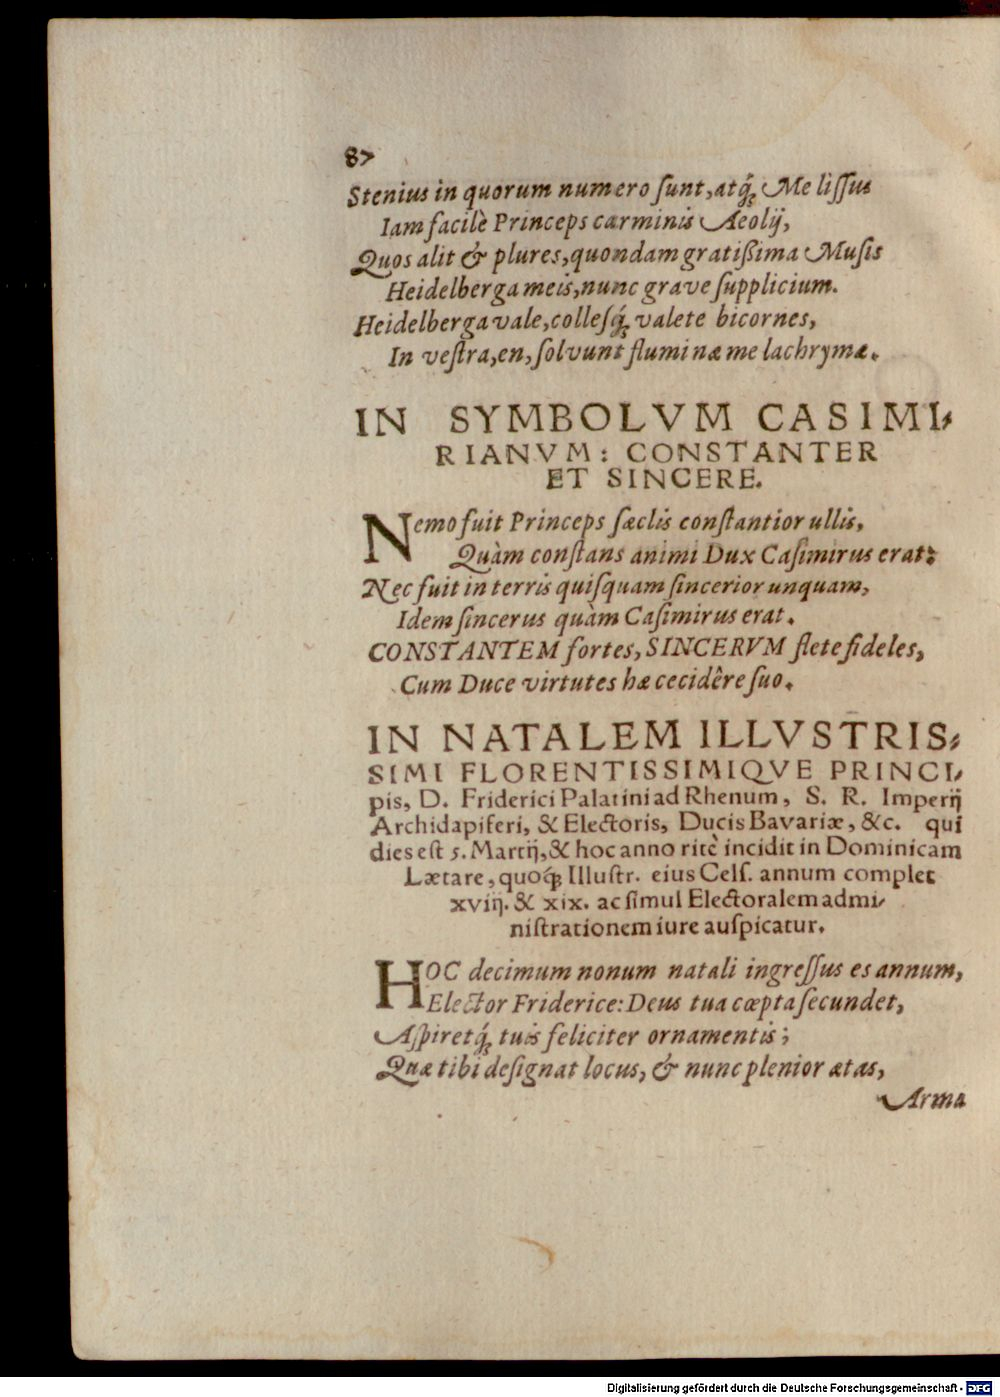 87
Stenius in quorum numero sunt, atq́ꝫ Melissus
Iam facilè Princeps carminis Aeolij,
Quos alit & plures, quondam gratißima Musis
Heidelberga meis, nunc grave supplicium.
Heidelberga vale, collesq́ꝫ valete bicornes,
In vestra, en, solvunt flumina me lachrymæ.
IN SYMBOLVM CASIMI-
RIANVM: CONSTANTER
ET SINCERE.
Nemo fuit Princeps sæclis constantior ullis,
Quàm constans animi Dux Casimirus erat:
Nec fuit in terris quisquam sincerior unquam,
Idem sincerus quàm Casimirus erat.
CONSTANTEM fortes, SINCERVM flete fideles,
Cum Duce virtutes hæ cecidêre suo.
IN NATALEM ILLVSTRIS-
SIMI FLORENTISSIMIQVE PRINCI-
pis, D. Friderici Palatini ad Rhenum, S. R. Imperij
Archidapiferi, & Electoris, Ducis Bavariæ, &c. qui
dies est 5. Martij, & hoc anno ritè incidit in Dominicam
Lætare, quoq́ꝫ Illustr. eius Cels. annum complet
xviij. & xix. ac simul Electoralem admi-
nistrationem iure auspicatur.
HOC decimum nonum natali ingressus es annum,
Elector Friderice: Deus tua cœpta secundet,
Aspiretq́ꝫ tuis feliciter ornamentis;
Quæ tibi designat locus, & nunc plenior ætas,
Arma
Digitalisierung gefördert durch die Deutsche Forschungsgemeinschaft - DFG